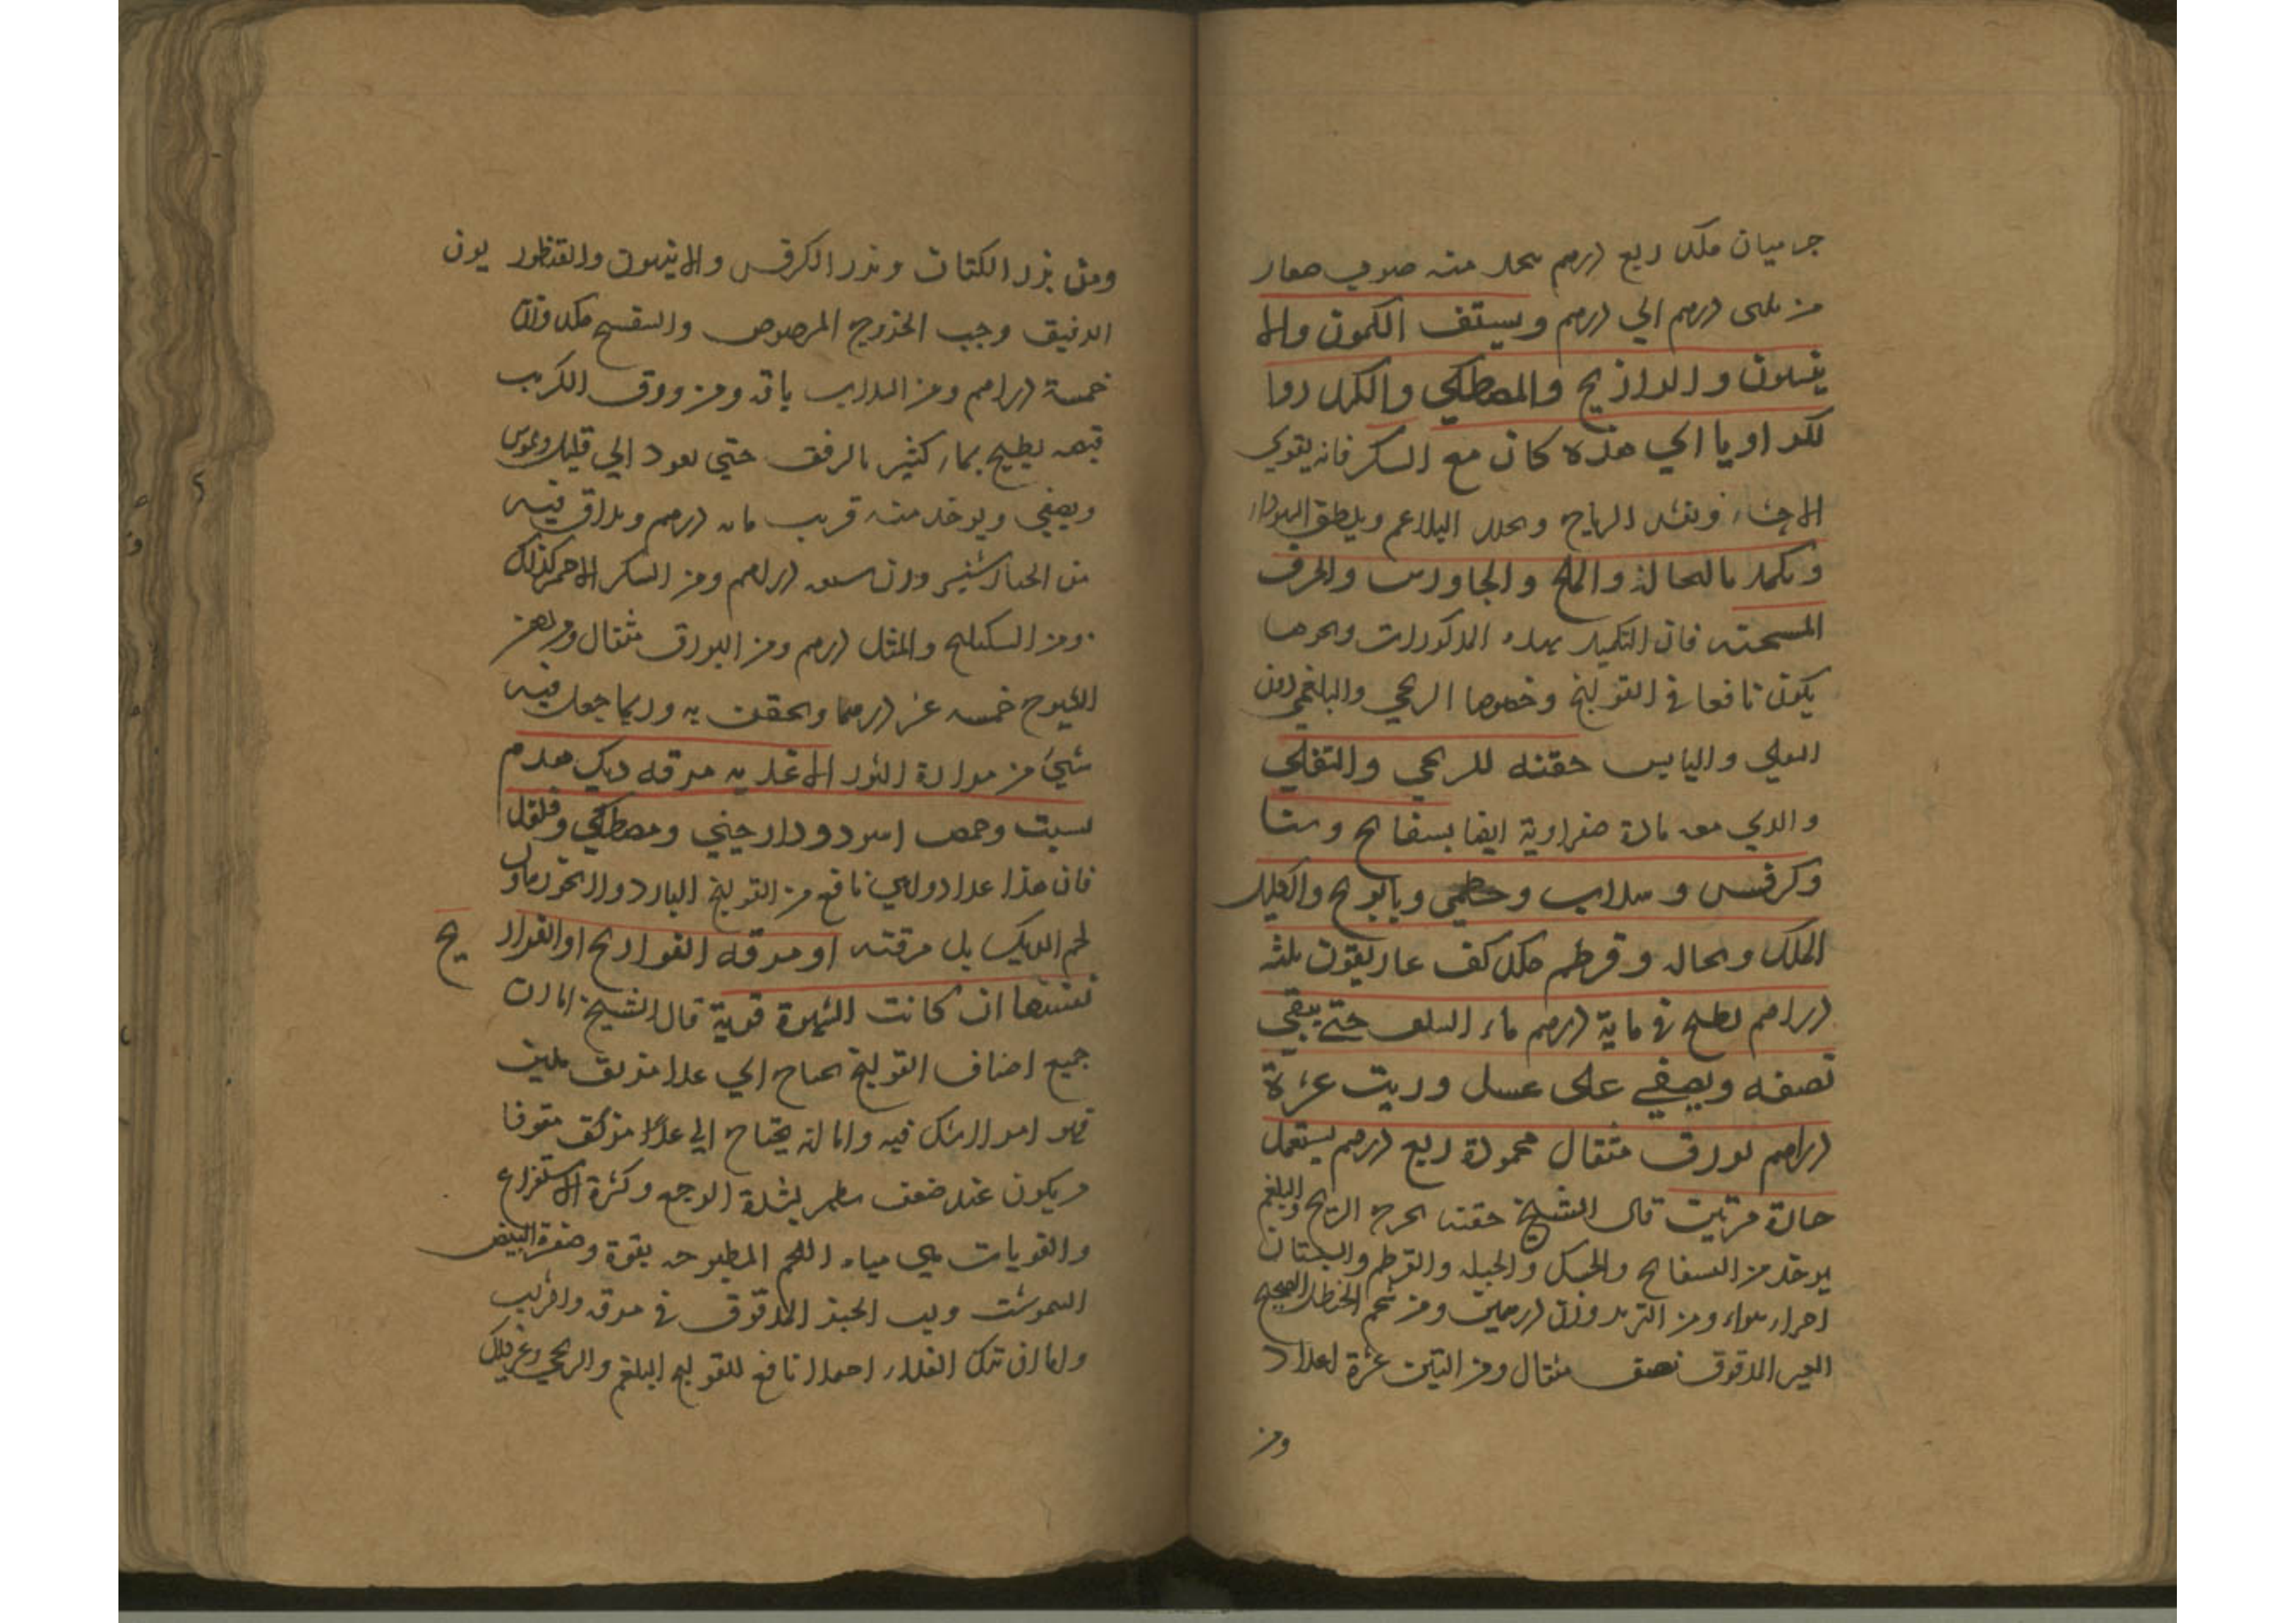 جرميان مكد ربع درهم يتخذ منه حبوب صغار
من ثلثى درهم الي درهم ويستف الكمون والا
نيسون والرازيانج والمصطكي والكراويا
لكد اويا اي هذه كان مع السكر فانه يقوي
الاحشاء ويفش الرياح ويحلل البلاغم ويلطف السوداء
ويكمد بالنخالة والملح والجاورس والحرف
المسخنه فان التكميد بهذه المذكورات ونحوها
يكون نافعا في القولنج وخصوصا الريحي والبلغمي دون
الثفلي واليابس حقنه للريحي والثفلي
والذي معه مادة صفراوية ايضا بسفايج وسنا
وكرفس وسداب وخطمي وبابونج واكليل
الملك ونخاله وقرطم مكد كف غاريقون ثلثه
دراهم يطبخ في ماية درهم ماء السلق حتي يبقي
نصفه ويصفي على عسل وزيت عشرة
دراهم بورق مثقال محمودة ربع درهم يستعمل
حارة مرتين قال الشيخ حقنه تخرج الريح والبلغم
يوخذ من البسفايج والحسك والحلبه والقرطم والبستان
اجزاء سواء ومن التربد وزن درهمين ومن شحم الحنظل الصحيح
الغير المدقوق نصف مثقال ومن التين عشرة اعداد
ومن
ومن بزر الكتان وبذر الكرفس والانيسون والقنطور يون
الدقيق وحب الخروع المرضوض والبنفسج مكد وزن
خمسة دراهم ومن السداب باقه ومن ورق الكرنب
قبضه يطبخ بماء كثير بالرفق حتي يعود الي قليل ويمرس
ويصفي ويوخذ منه قريب مايه درهم ويداف فيه
من الخيارشنبر وزن سبعه دراهم ومن السكر الاحمر كذلك
ومن السكبينج والمثل درهم ومن البورق مثقال ومن دهن
الشيرج خمسه عشر درهما ويحقن به وربما جعل فيه
شيء من مرارة الثور الاغذيه مرقه ديك هدم
بسبت وحمص اسود ودارجيني ومصطكي وفلفل
فان هذا غذا دوائي نافع من القولنج البارد ولا يجوز تناول
لحم الديك بل مرقته او مرقه الفواريج او الفرار يج
نفسها ان كانت الشهوة قوية قال الشيخ اما ان
جميع اصناف القولنج يحتاج الي غذا مزلق ملين
فهو امر لا شك فيه واما انه يحتاج الي غذاء مزلق مقو فا
ويكون عند ضعف يظهر لشدة الوجع وكثرة الاستفراغ
والمقويات هي مياه اللحم المطبوخه بقوة وصفرة البيض
النيمرشت ولب الخبز المدقوق في مرقه والشراب
واما ان ترك الغذاء اصلا نافع للقولنج البلغم والريحي وغير ذلك